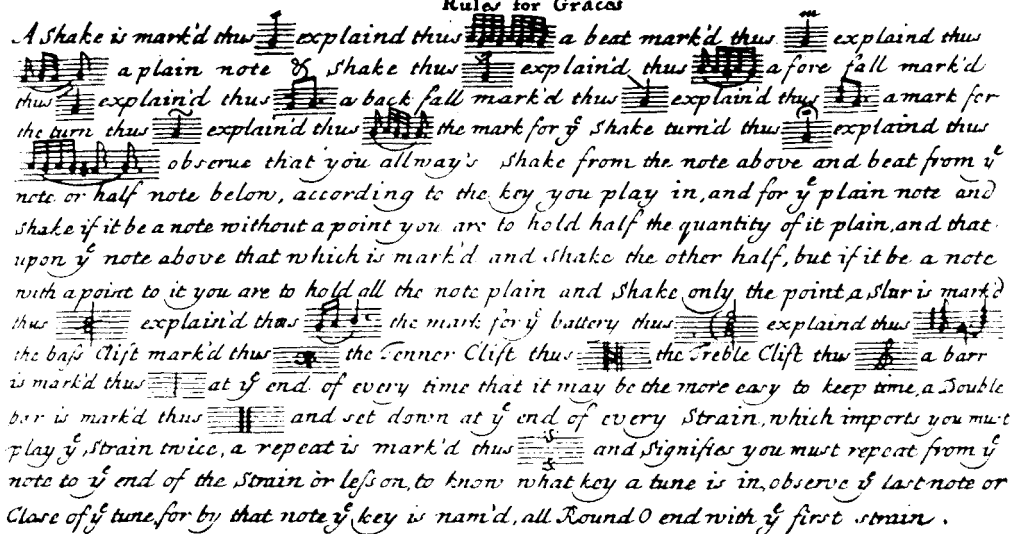 Rules for Graces
A Shake is mark'd thus explaind thus a beat mark'd thus explaind thus
a plain note & shake thus explain'd thus a fore fall mark'd
thus explain'd thus a back fall mark'd thus explain'd thus a mark for
the turn thus explain'd thus the mark for yͤ shake turn'd thus explaind thus
observe that you allway's shake from the note above and beat from yͤ
note or half note below, according to the key you play in, and for yͤ plain note and
shake if it be a note without a point you are to hold half the quantity of it plain, and that
upon yͤ note above that which is mark'd and shake the other half, but if it be a note
with a point to it you are to hold all the note plain and shake only the point, a slur is mark'd
thus explain'd thus the mark for yͤ battery thus explaind thus
the baſs Clift mark'd thus the Tenner Clift thus the Treble Clift thus a barr
is mark'd thus at yͤ end of every time that it may be the more easy to keep time, a Double
bar is mark'd thus and set down at yͤ end of every Strain, which imports you must
play yͤ Strain twice, a repeat is mark'd thus :S: and signifies you must repeat from yͤ
note to yͤ end of the Strain or leſson, to know what key a tune is in, observe yͤ last note or
Close of yͤ tune, for by that note yͤ key is nam'd, all Round O end with yͤ first strain.